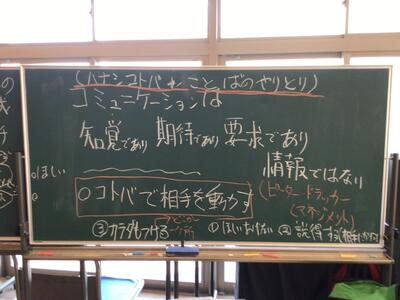 (ハナシコトバ・ことばのやりとり)
コミュニケーションは
知覚であり 期待であり 要求であり
情報ではない
ほしい
(ピーター・ドラッカー
(マネジメント)
○コトバで相手を動かす
③カラダもつける ① ②説得する